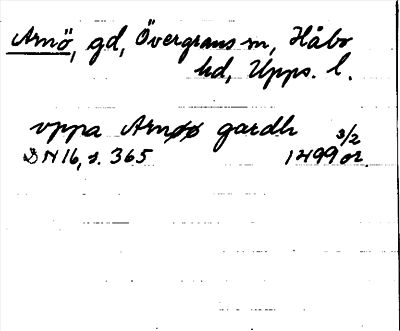 Arnö, gd, Övergrans sn, Håbo
hd, Upps. l.
vppa Arnøø gardh
DN 16, s. 365 1499 3/2 or.